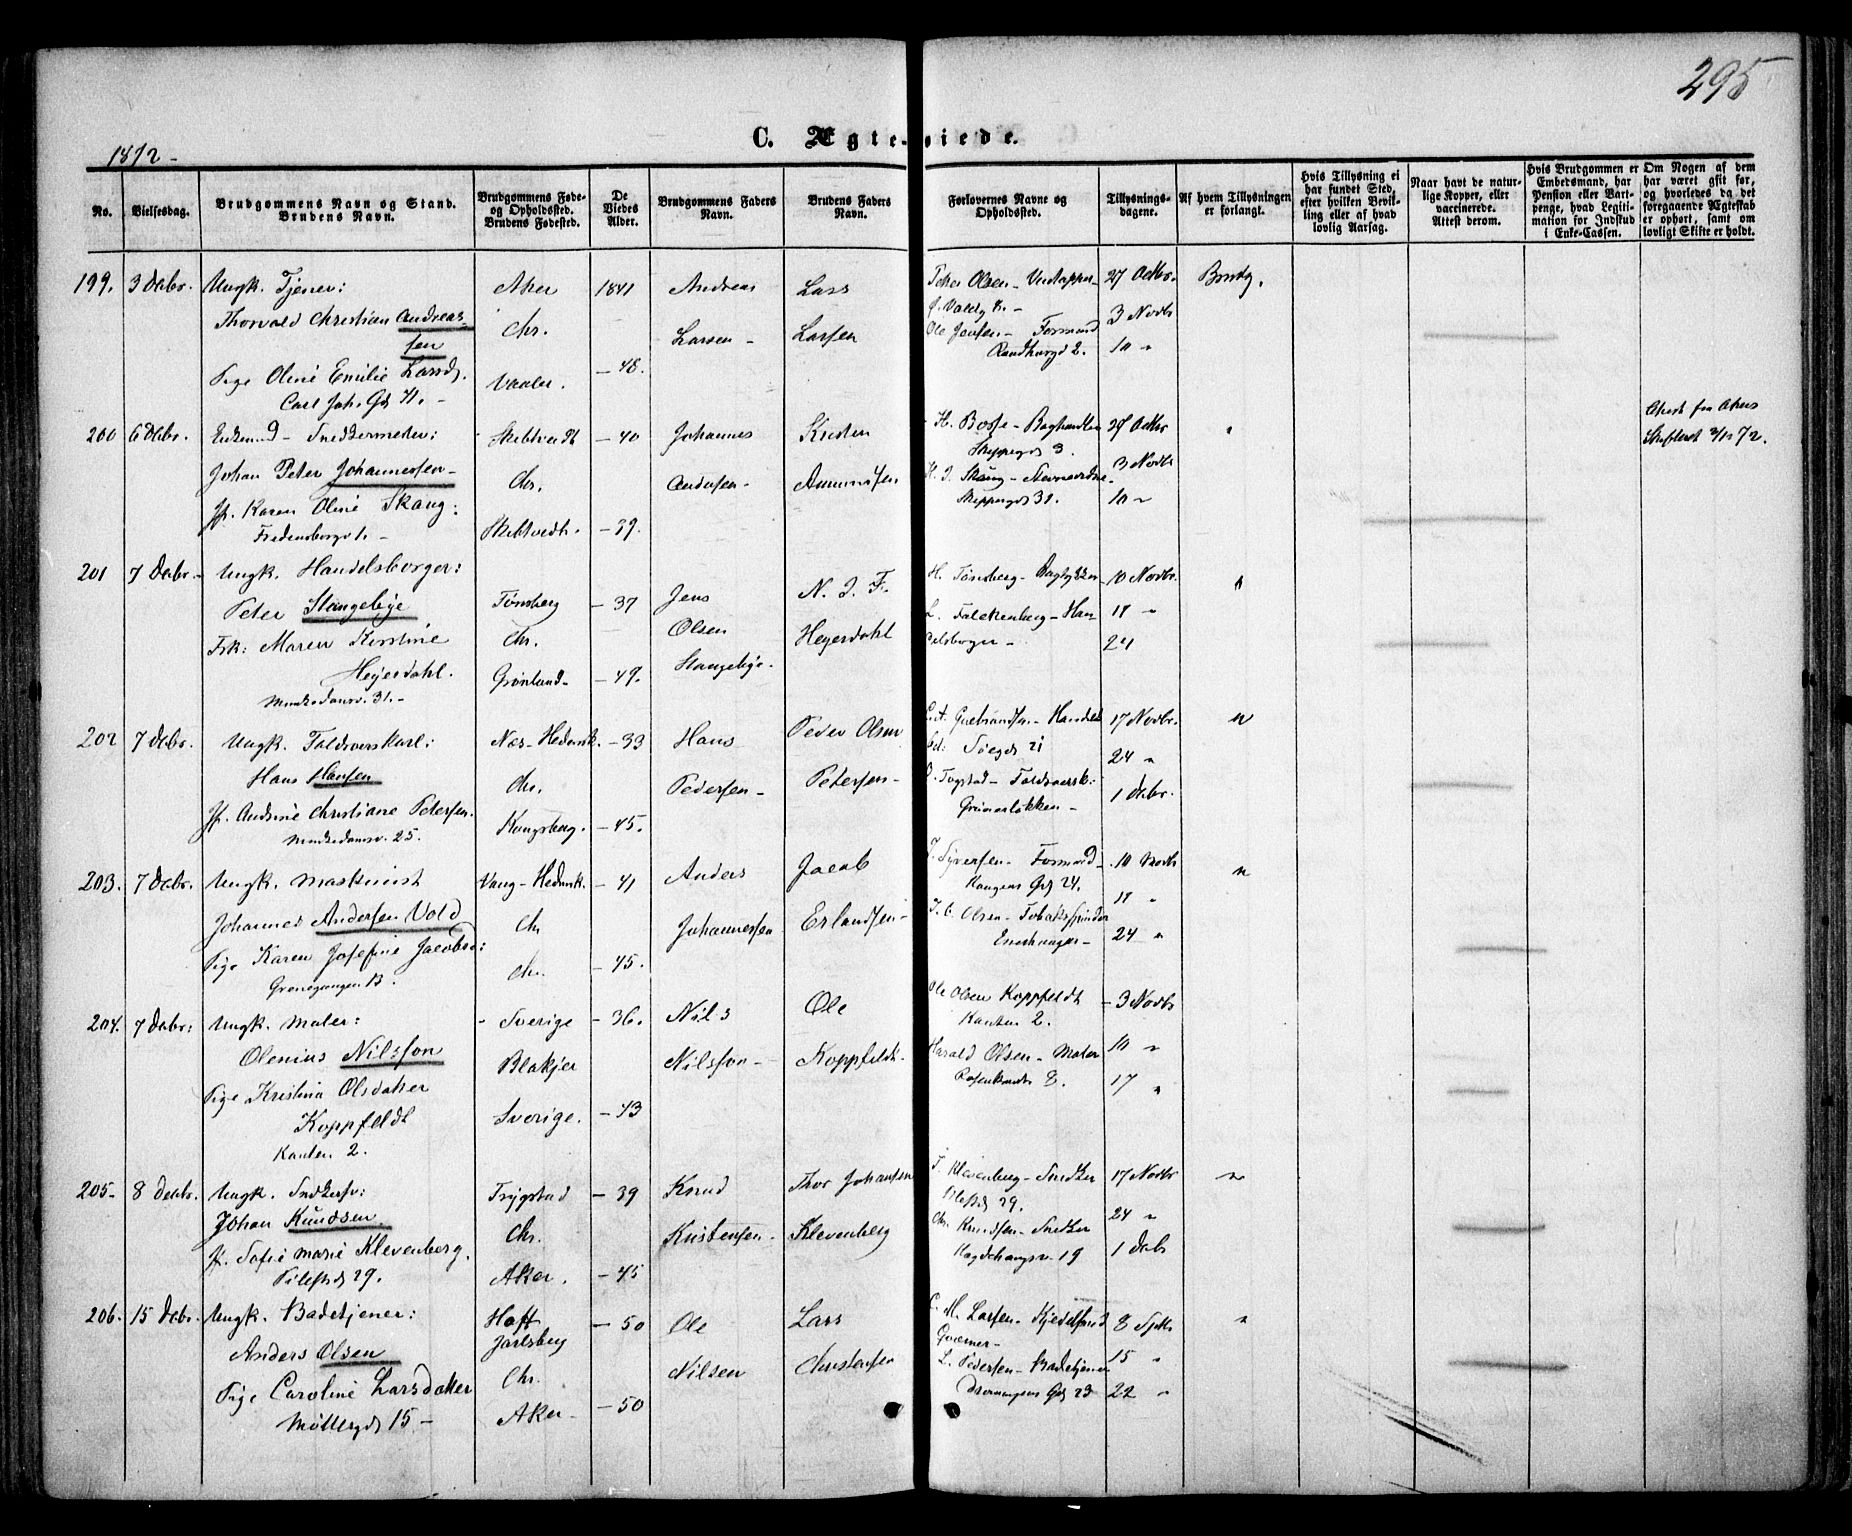 295
C. Ægteviede.
1872-
No.
Vielsesdag.
Brudgommens Navn og Stand.
Brudens Navn.
Brudgommens Føde-
og Opholdssted.
Brudens Fødested.
De
Viedes
Alder.
Brudgommens Faders
Navn.
Brudens Faders
Navn.
Forlovernes Navne og
Opholdssted.
Tillysnings-
dagene.
Af hvem Tillysningen
er forlangt.
Hvis Tillysning ei
har fundet Sted,
efter hvilken Bevil-
ling eller af hvad
lovlig Aarsag.
Naar havt de natur-
lige Kopper, eller
vaccinerede.
Attest derom.
Hvis Brudgommen er
Embedsmand, har
Pension eller Vart-
penge, hvad Legiti-
mation for Indskud
i Enke-Cassen.
Om Nogen af dem
har været gift før,
og hvorledes da det
foregaaende Ægteskab
er ophørt, samt om
lovligt Skifte er holdt.
199. 3 Decbr. Ungk. Tjener: Aker 1841 Andreas Lars Olsen - 27 Octbr. Brudg.
Thorvald Christian Andreas- Chr. Larsen - Larsen 3 Novbr
sen Ole Jensen - Formand 10 "
Pige Oline Emilie Larsd. Vaaler. - 48.
Carl Joh. Gd 41. -
200 6 Decbr. Enkemd - Snedkermester: Skibtvedt - 40 Johannes Kristen H. Bosse - Boghandler 27 Octbr " Attest fra Akers
Skifteret 3/12 72.
Johan Peter Johannessen - Chr. Andersen - Amundsen Skippergd 3 3 Novbr
Jf. Karen Oline Skaug: Skibtvedt. - 39. H. J. Skaug - Skippergd 31. 10 "
Fredensborgv. -
201 7 Decbr. - Ungk. Handelsborger: Tönsberg - 37 Jens N. J. F. H. Tönsberg - 10 Novbr. "
Peter Stangebye Chr. Olsen Heyerdahl L. Falckenberg - Han- 18 "
Frk: Maren Kirstine Grönland - - 49. Stangebye - delsborger - 24
Heyerdahl.
Munkedamsv. 31. -
202 7 Decbr. Ungk. Toldverskarl: Næs - Hedemk. - 33 Hans Peder Olsen Gulbrandsen - Handels 17 Novbr. "
Hans Hansen Chr. Pedersen - Petersen - Söegd 21 24 "
Jf. Andrine Christiane Petersen. Kongsberg. - 45. O. Fogstad - Toldverk: 1 Decbr.
Munkedamsv. 25. Grünerløkken -
203. 7 Decbr. Ungk. Maskinist Vang - Hedemk. - 41 Anders Jacob J. Syversen - Formand - 10 Novbr "
Johannes Andersen Vold Chr Johannessen Erlandsen - Kongens Gd 24. 18 "
Pige Karen Josefine Jacobsd: Chr. - 45. J. C. Olsen - Tobaksspinder 24 "
Grönnegangen 13. Enerhaugen -
204. 7 Decbr: Ungk. Maler: Sverige - 36. Nils Ole Ole Olsen Koppfeldt - 3 Novbr
Olenius Nilsson Blakjer Nilsson - Koppfeldt - Kanten 2. 10 "
Pige Kristina Olsdatter Sverige. - 43 Harald Olsen - Maler 17 "
Koppfeldt Rosenkrandts 8.
Kanten 2.
205 - 8 Decbr. Ungk. Snedkersv: Trygstad - 39 Knud Thor Johansen T. Klevenberg - Snedker 17 Novbr "
Johan Knudsen Chr. Kristensen - Klevenberg Pilestd 29. 24 "
Jf. Sofie Marie Klevenberg. Aker. - 45 Chr. Knudsen - Snedker 1 Decbr
Pilestd 29. 19
206. 15 Decbr. Ungk. Badetjener: Hoff - 50 Ole Lars C. M. Larsen - Kjedelsmed 8 Septbr "
Anders Olsen Jarlsberg Nilsen Christensen Qværner - 15 "
Pige Caroline Larsdatter Chr. L. Pedersen - Badetjener
Møllergd 15 - Aker - - 50 Dronningens Gd 23 22 "